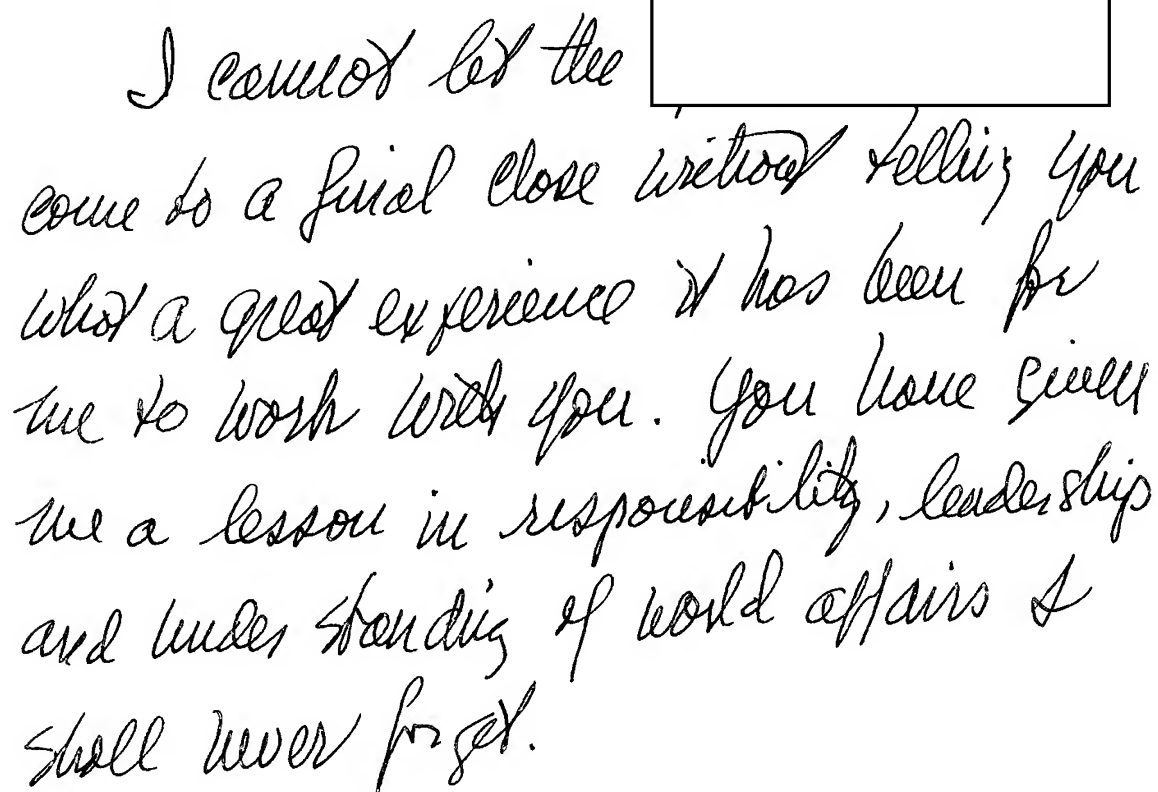 I cannot let the
come to a final close without telling you
what a great experience it has been for
me to work with you. You have given
me a lesson in responsibility, leadership
and understanding of world affairs I
shall never forget.